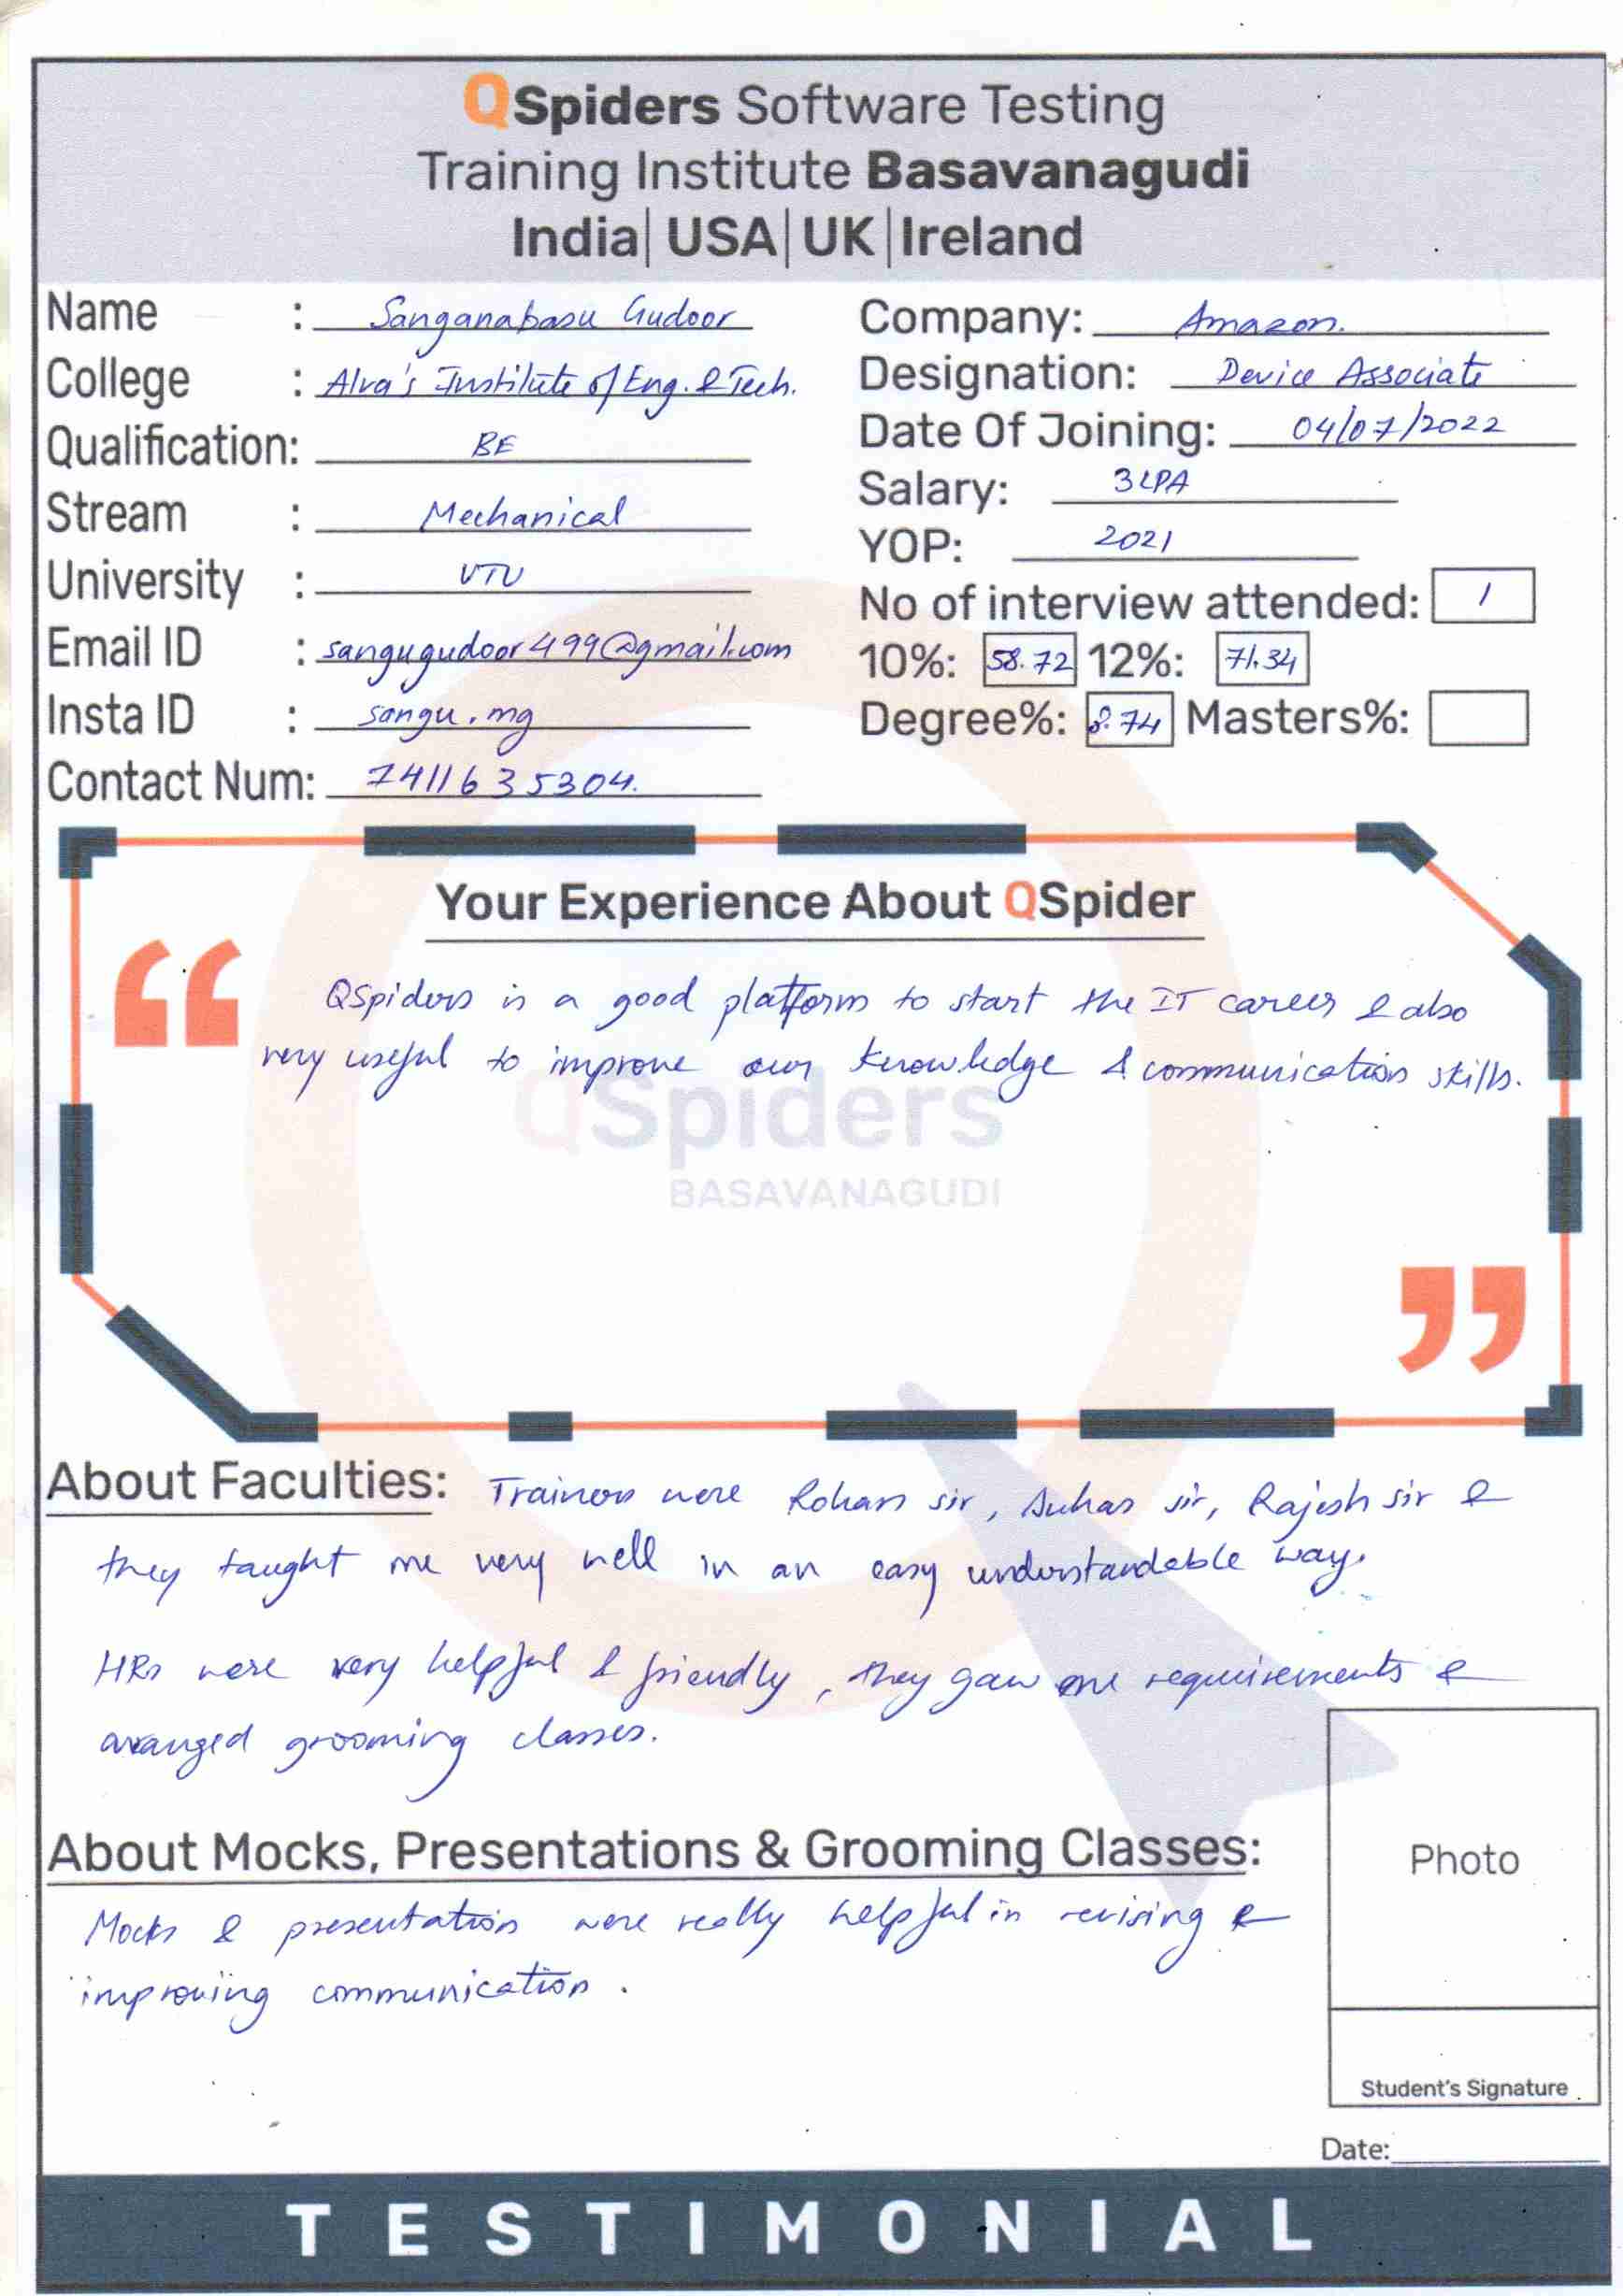 QSpiders Software Testing
Training Institute Basavanagudi
India| USA| UK| Ireland
Name : Sanganabasu Gudoor
College : Alva's Institute of Eng. & Tech.
Qualification: BE
Stream : Mechanical
University : VTU
Email ID : sangugudoor499@gmail.com
Insta ID : sangu.mg
Contact Num: 7411635304.
Company: Amazon.
Designation: Device Associate
Date Of Joining: 04/07/2022
Salary: 3 LPA
YOP: 2021
No of interview attended: 1
10%: 58.72 12%: 71.34
Degree%: 8.74 Masters%:
Your Experience About QSpider
“
QSpiders is a good platform to start the IT career & also
very useful to improve our knowledge & communication skills.
QSpiders
BASAVANAGUDI
”
About Faculties: Trainers were Rohan sir, Suhas sir, Rajesh sir &
they taught me very well in an easy understandable way.
HRs were very helpful & friendly, they gave me requirements &
arranged grooming classes.
About Mocks, Presentations & Grooming Classes:
Mocks & presentation were really helpful in revising &
improving communication.
Photo
Student's Signature
Date:
TESTIMONIAL